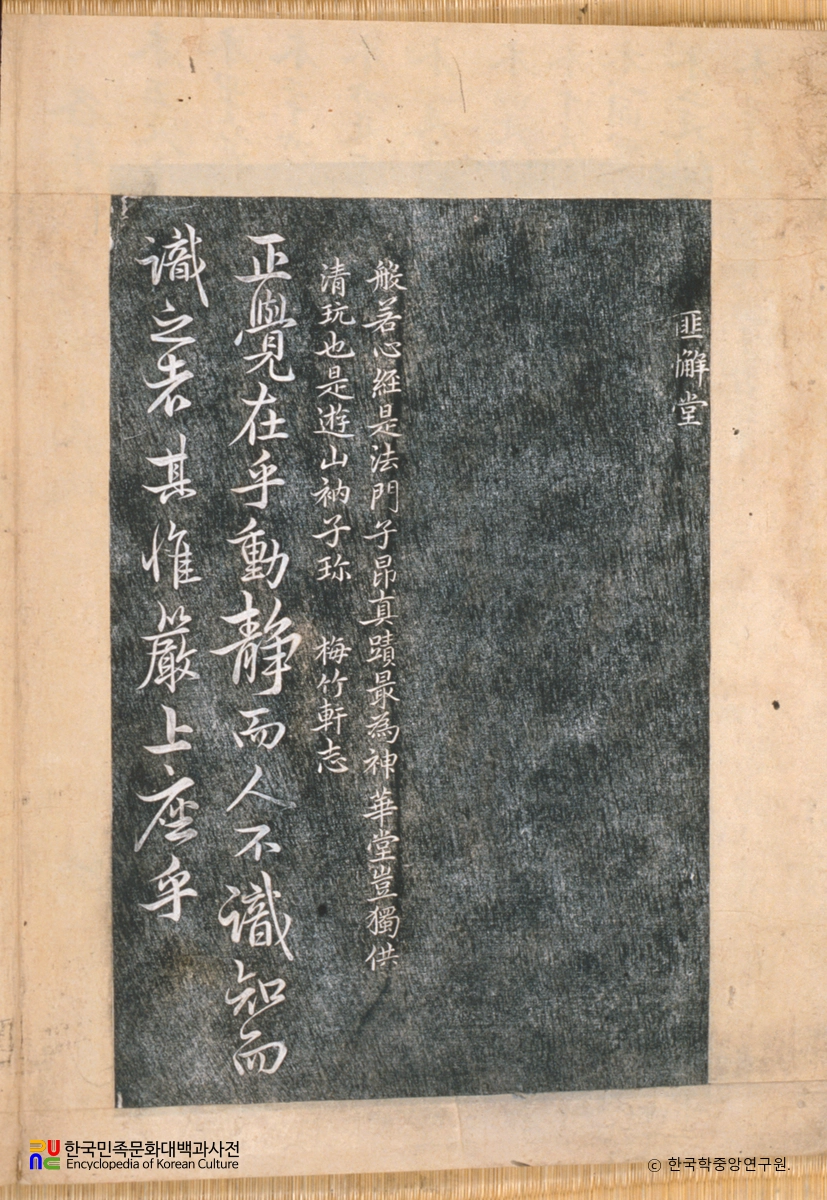 匪懈堂
般若心經是法門子昂真蹟最為神華堂豈獨供
清玩也是遊山衲子珎 梅竹軒志
正覺在乎動靜而人不識知而
識之者其惟嚴上座乎
한국민족문화대백과사전
Encyclopedia of Korean Culture
ⓒ 한국학중앙연구원.